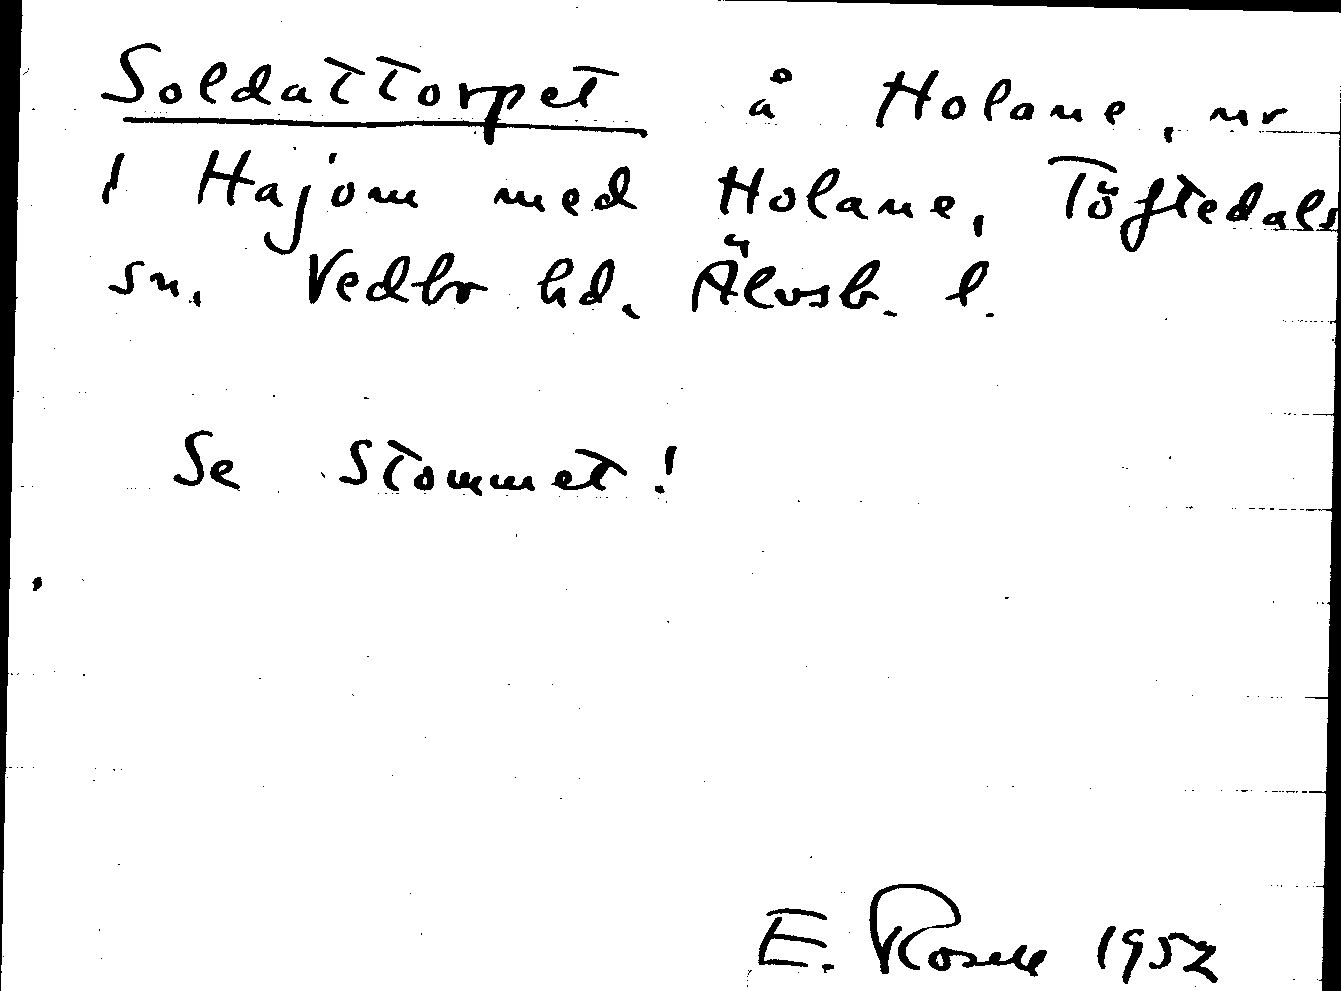 Soldattorpet å Holane, nr
1 Hajom med Holane, Töftedals
sn. Vedbo hd. Älvsb. l.
Se Stommet!
E. Rosell 1952